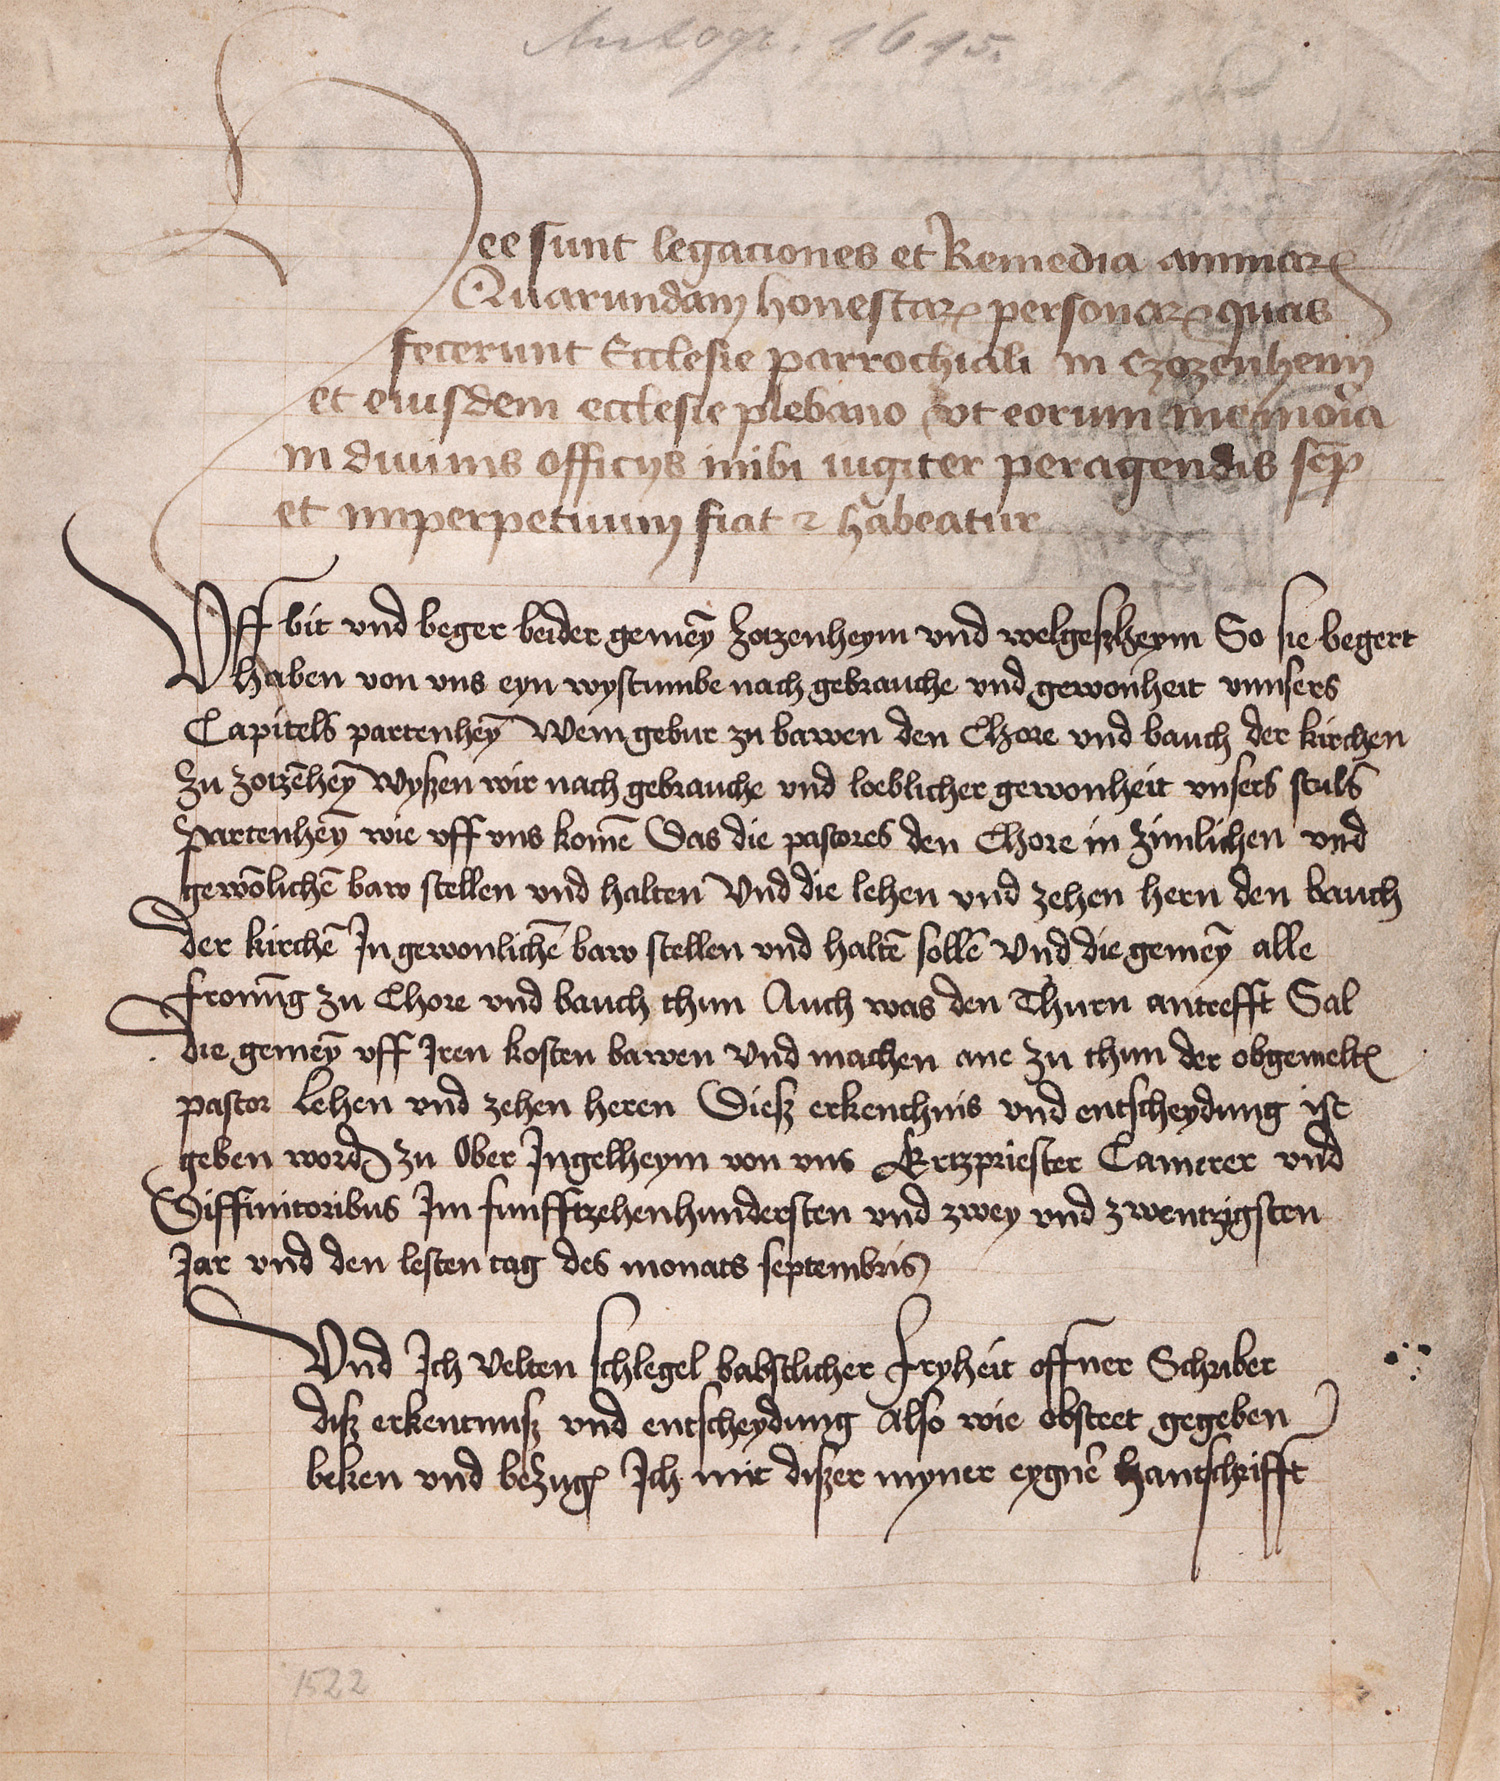 Autogr. 1645.
Hee sunt legaciones et Remedia animarꝝ
Quarundam honestarꝝ personarꝝ quas
fecerunt Ecclesie parrochiali in Czozenheim
et eiusdem ecclesie plebano vt eorum memoria
in diuinis officijs inibi iugiter peragendis semp
et imperpetuum fiat ⁊ habeatur
Vff bit vnd beger beider gemeȳ Zotzenheym vnd welgeszheym So sie begert
haben von vns eyn wystumbe nach gebrauche vnd gewonheit vnnsers
Capitels partenheȳ Wem gebur zu bawen den Chore vnd bauch der kirchen
Zu zotzēheȳ Wyszen wir nach gebrauche vnd loeblicher gewonheit vnsers stuls
Partenheȳ wie vff vns komē Das die pastores den Chore in zimlichen vnd
gewōlichē baw stellen vnd halten Vnd die lehen vnd zehen hern den bauch
der kirchē In gewonlichē baw stellen vnd haltē sollē Vnd die gemeȳ alle
fronūg zu Chore vnd bauch thun Auch was den Thurn antrefft Sal
die gemeȳ vff Iren kosten bawen Vnd machen ane zu thun der obgemeltꝭ
pastor Lehen vnd zehen heren Diesz erkenthnis vnd entscheydung ist
geben wordꝭ zu Ober Ingelheym von vns Ertzpriester Camerer vnd
Diffinitoribus Im funfftzehenhundersten vnd zwey vnd zwentzigsten
Jar vnd den lesten tag des monats septembris
Vnd Ich Velten schlegel babstlicher fryheit offner Schriber
disz erkentnusz vnd entscheydung Also wie obsteet gegeben
beken vnd bezugꝭ Ich mit diszer myner eygnē hantschrifft
1522